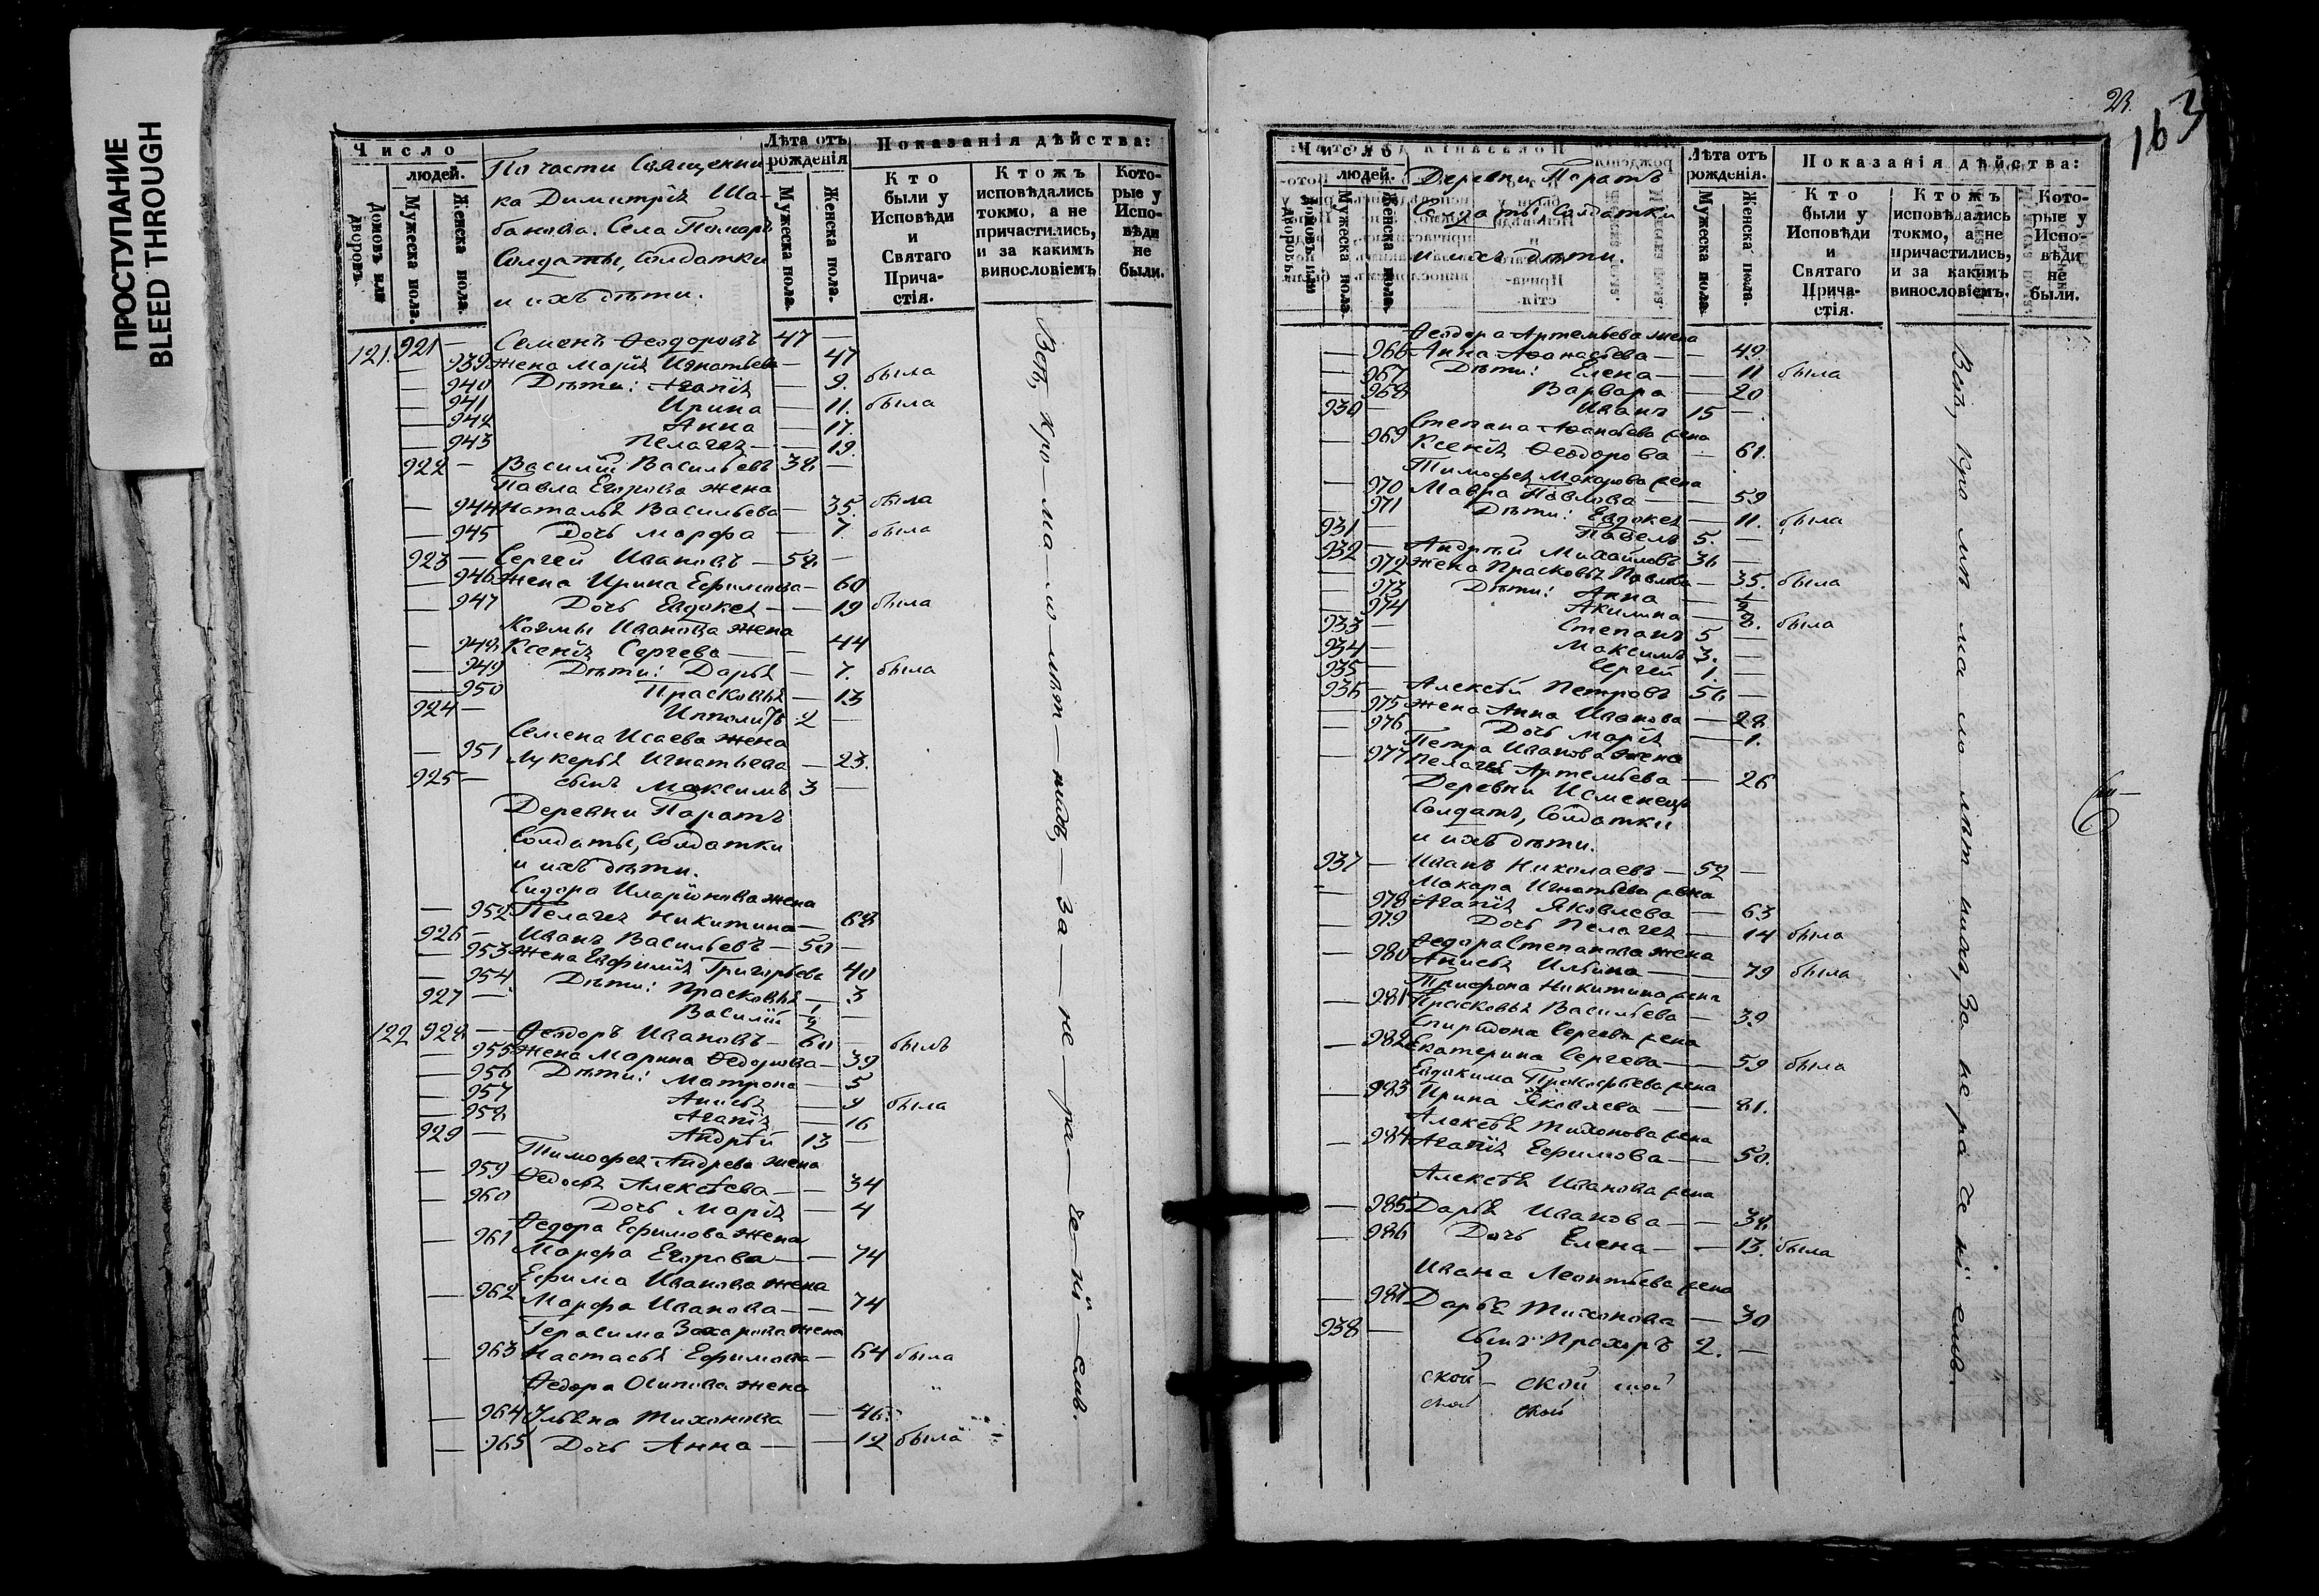 ПРОСТУПАНИЕ
BLEED THROUGH
Число
людей.
Домовъ или дворовъ.
Мужеска пола.
Женска пола.
По части Священни
ка Димитрія Ша-
банова. Села
Солдаты, Солдатки
и ихъ дѣти.
Лѣта отъ рожденія
Мужеска пола.
Женска пола.
Показанія дѣйства:
Кто были у Исповѣди и Святаго Прича-стія.
Ктожъ исповѣдались токмо, а не причастились, и за какимъ винословіемъ
Кото-рые у Испо-вѣди не были.
121. 921 — Семенъ Ѳеодоровъ 47 —
— 939 Жена Марія Игнатьева — 47
— 940 Дѣти: Агапія — 9. была
— 941 Ирина — 11. была
— 942 Анна — 17.
— 943 Пелагея — 19.
922 — Василій Васильевъ 38 —
Павла Егорова жена
— 944 Наталья Васильева — 35. была
— 945 Дочь Марфа — 7. была
923 — Сергей Ивановъ — 58. —
— 946 Жена Ирина Ефимова — 60
— 947 Дочь Евдокея — — 19 была
Козмы Иванова жена
— 948 Ксенія Сергева — — 44
— 949 Дѣти: Дарья — 7. была
— 950 Прасковья — 13
924 — Ипполитъ 2 —
Семена Исаева жена
— 951 Лукерья Игнатьева — 23.
925 — сынъ Максимъ 3 —
Деревни Паратъ
Солдаты, Солдатки
и ихъ дѣти.
Сидора Иларіонова жена
— 952 Пелагея Никитина — 68
926 — Иванъ Васильевъ — 50 —
— 953 Жена Евфимія Григорьева 40
— 954 Дѣти: Прасковья — 3
927 — Василій 1/2 —
122 928 — Ѳеодоръ Ивановъ — 60 — былъ
— 955 Жена Марина Ѳедорова — 39
— 956 Дѣти: Матрона — 5
— 957 Анисья — 9 была
— 958 Агапія — 16
929 — Андрѣй 13 —
Тимофея Андрева жена
— 959 Ѳедосья Алексѣева — — 34
— 960 Дочь Марія — 4
Ѳедора Ефимова жена
— 961 Марфа Егорова — — 74
Ефима Иванова жена
— 962 Марфа Иванова — — 74
Герасима Захарова жена
— 963 Настасья Ефимова — 64 была
Ѳедора Осипова жена
— 964 Ульяна Тихонова — 46.
— 965 Дочь Анна — — 12 была
Всѣ, кро-ма-ло-лѣт-нихъ,-за-не-ра-че-ні-емъ.
23.
163
Число
людей.
Домовъ или дворовъ.
Мужеска пола.
Женска пола.
Деревни Паратъ
Солдаты, Солдатки
и ихъ дѣти.
Лѣта отъ рожденія.
Мужеска пола.
Женска пола.
Показанія дѣйства:
Кто были у Исповѣди и Святаго Прича-стія.
Ктожъ исповѣдались токмо, а не причастились, и за какимъ винословіемъ.
Кото-рые у Испо-вѣди не были.
Ѳеодора Артемьева жена
— 966 Анна Аѳанасьева — — 49.
— 967 Дѣти: Елена — — 11 была
— 968 Варвара — 20
930 — Иванъ 15 —
Степана жена
— 969 Ксенія Ѳеодорова — 61.
Тимофея Макарова жена
— 970 Мавра Павлова — — 59
971 Дѣти: Евдокея — 11. была
931 — Павелъ 5. —
932 — Андрѣй Михайловъ 36 —
— 972 Жена Прасковья Павлова — 35. была
— 973 Дѣти: Анна — 1/2
— 974 Акилина — 8. была
933 — Степанъ 5 —
934 — Максимъ 3. —
935 — Сергей 1. —
936 — Алексѣй Петровъ 56 —
— 975 Жена Анна Иванова — 28.
— 976 Дочь Марія — 1.
Петра Иванова жена
— 977 Пелагея Артемьева — 26
Деревни Исменецъ
Солдатъ, Солдатки
и ихъ дѣти.
937 — Иванъ Николаевъ — 52 —
Макара Игнатьева жена
— 978 Агапія Яковлева — 63
— 979 Дочь Пелагея — 14 была
Ѳедора Степанова жена
— 980 Анисья Ильина — — 79 была
Трифона Никитина жена
— 981 Прасковья Васильева — 39
Спиридона Сергева жена
— 982 Екатерина Сергева — — 59 была
Евдокима Прокофьева жена
— 983 Ирина Яковлева — — 81.
Алексѣя Тихонова жена
— 984 Агапія Ефимова — — 50.
Алексѣя Иванова жена
— 985 Дарья Иванова — — 38.
— 986 Дочь Елена — — 13. была
Ивана Леонтьева жена
— 987 Дарья Тихонова — 30
938 — Сынъ Прохоръ 2. —
ской — ской
ской
Всѣ, кро мѣ ма ло лѣт нихъ, за не ра че ні емъ.